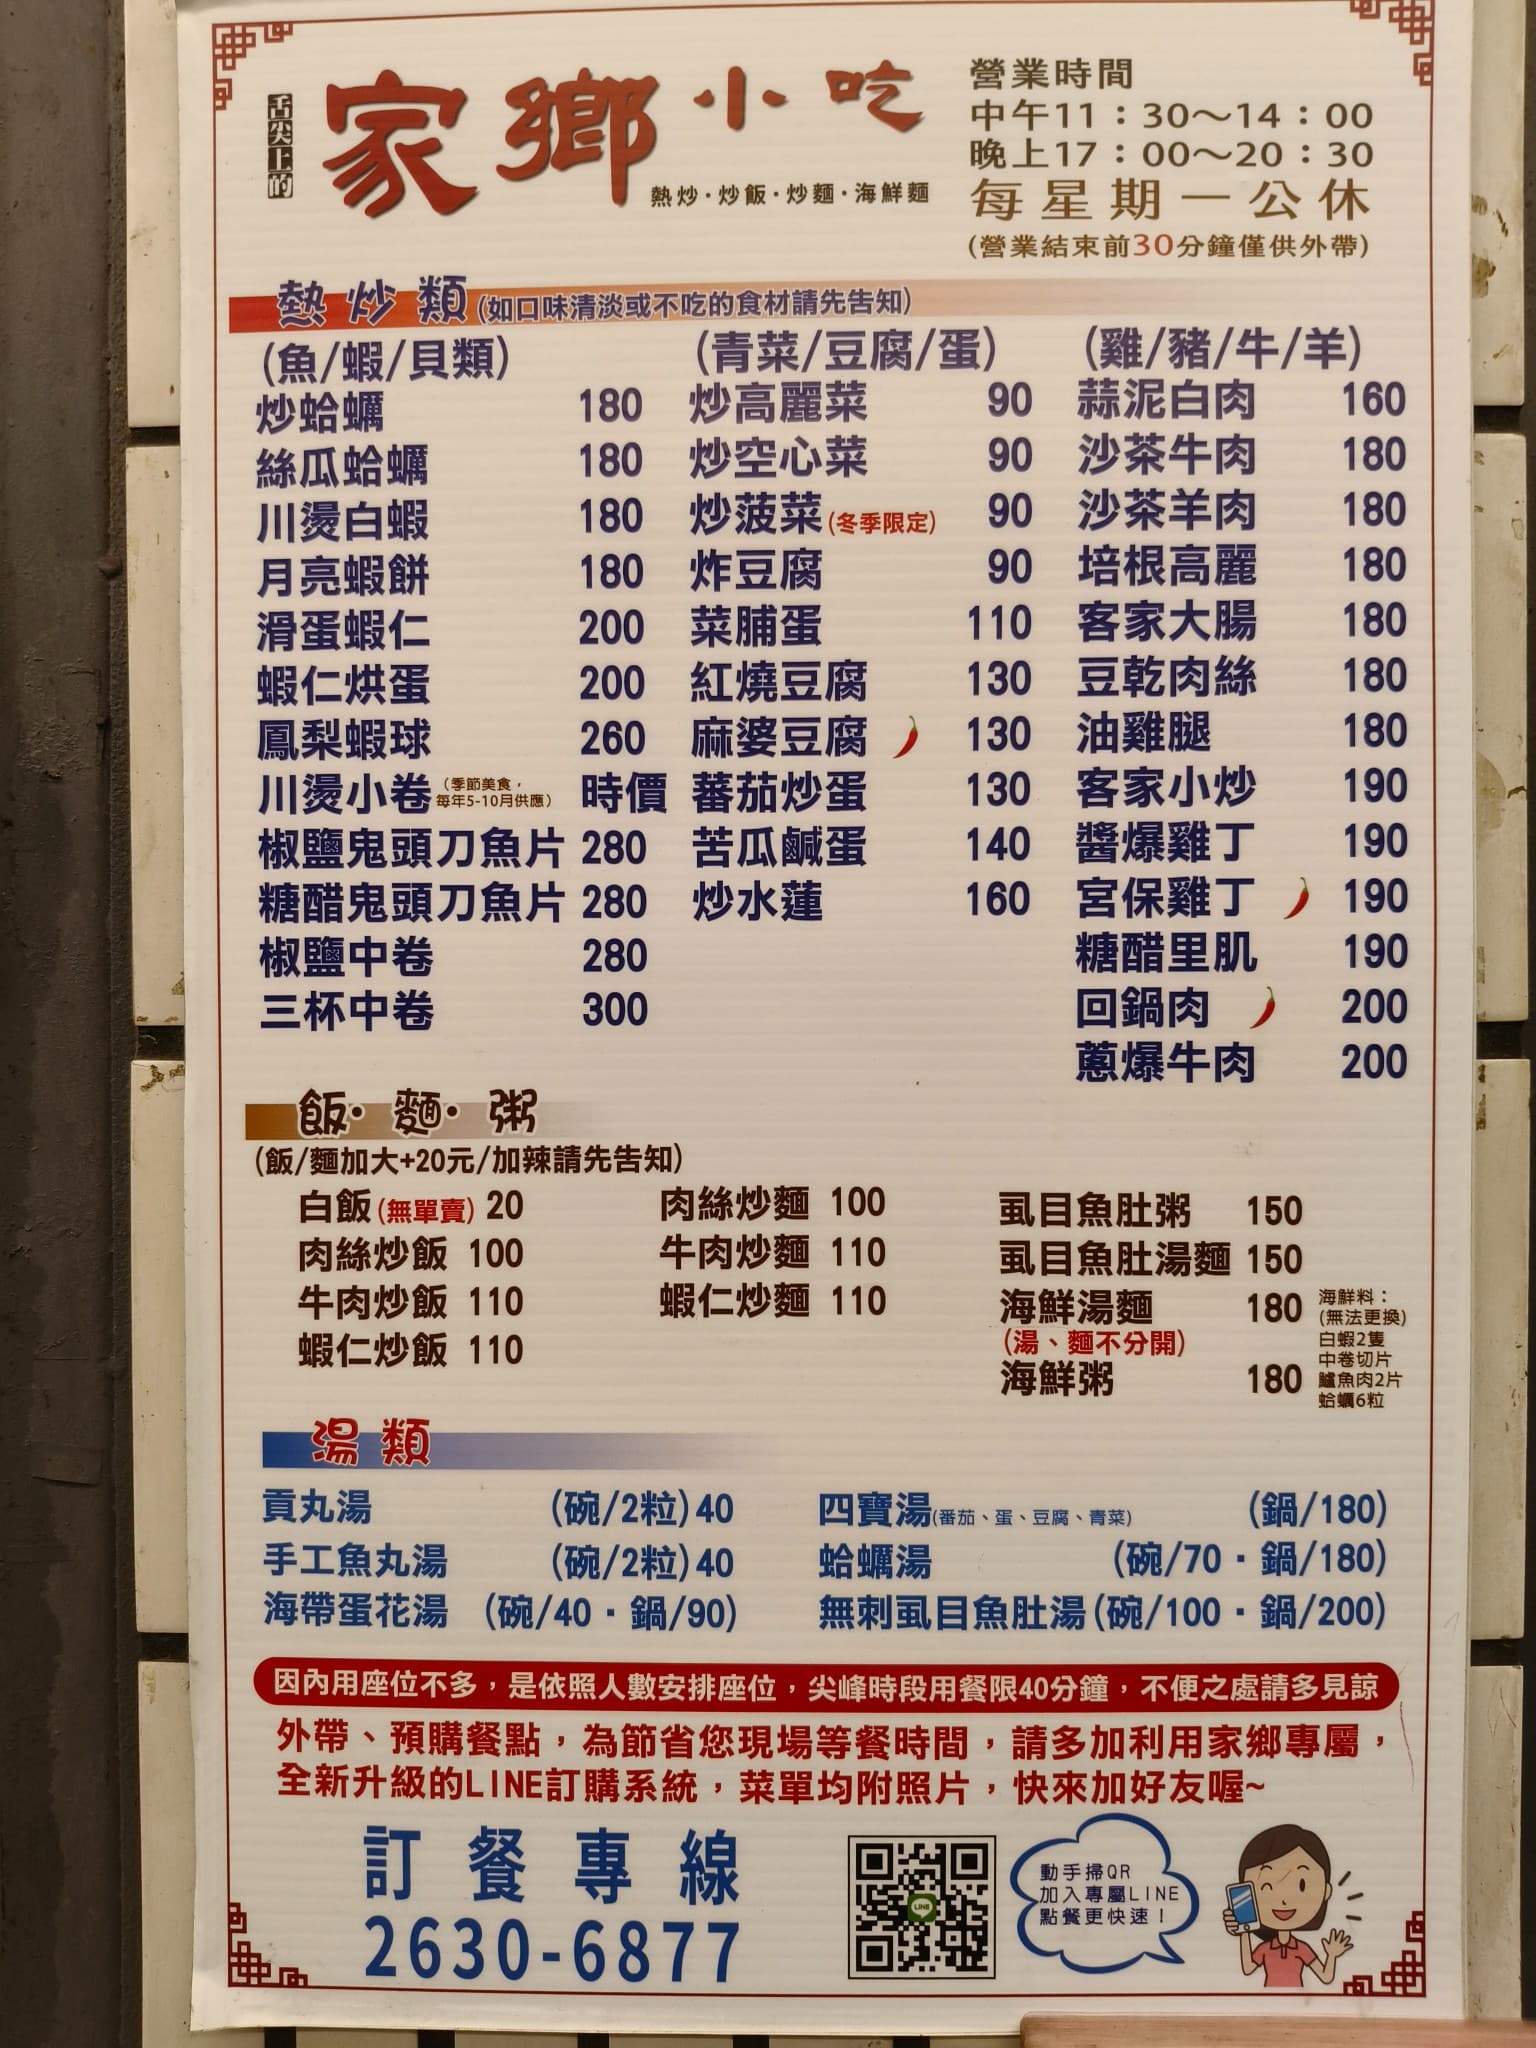 舌尖上的
家鄉小吃
熱炒·炒飯·炒麵·海鮮麵
營業時間
中午11：30～14：00
晚上17：00～20：30
每星期一公休
(營業結束前30分鐘僅供外帶)
熱炒類(如口味清淡或不吃的食材請先告知)
(魚/蝦/貝類)
炒蛤蠣 180
絲瓜蛤蠣 180
川燙白蝦 180
月亮蝦餅 180
滑蛋蝦仁 200
蝦仁烘蛋 200
鳳梨蝦球 260
川燙小卷(季節美食，每年5-10月供應) 時價
椒鹽鬼頭刀魚片 280
糖醋鬼頭刀魚片 280
椒鹽中卷 280
三杯中卷 300
(青菜/豆腐/蛋)
炒高麗菜 90
炒空心菜 90
炒菠菜(冬季限定) 90
炸豆腐 90
菜脯蛋 110
紅燒豆腐 130
麻婆豆腐 130
蕃茄炒蛋 130
苦瓜鹹蛋 140
炒水蓮 160
(雞/豬/牛/羊)
蒜泥白肉 160
沙茶牛肉 180
沙茶羊肉 180
培根高麗 180
客家大腸 180
豆乾肉絲 180
油雞腿 180
客家小炒 190
醬爆雞丁 190
宮保雞丁 190
糖醋里肌 190
回鍋肉 200
蔥爆牛肉 200
飯·麵·粥
(飯/麵加大+20元/加辣請先告知)
白飯(無單賣) 20
肉絲炒飯 100
牛肉炒飯 110
蝦仁炒飯 110
肉絲炒麵 100
牛肉炒麵 110
蝦仁炒麵 110
虱目魚肚粥 150
虱目魚肚湯麵 150
海鮮湯麵 180
(湯、麵不分開)
海鮮粥 180
海鮮料：
(無法更換)
白蝦2隻
中卷切片
鱸魚肉2片
蛤蠣6粒
湯類
貢丸湯 (碗/2粒)40
手工魚丸湯 (碗/2粒)40
海帶蛋花湯 (碗/40·鍋/90)
四寶湯(番茄、蛋、豆腐、青菜) (鍋/180)
蛤蠣湯 (碗/70·鍋/180)
無刺虱目魚肚湯(碗/100·鍋/200)
因內用座位不多，是依照人數安排座位，尖峰時段用餐限40分鐘，不便之處請多見諒
外帶、預購餐點，為節省您現場等餐時間，請多加利用家鄉專屬，
全新升級的LINE訂購系統，菜單均附照片，快來加好友喔~
訂餐專線
2630-6877
LINE
動手掃QR
加入專屬LINE
點餐更快速！